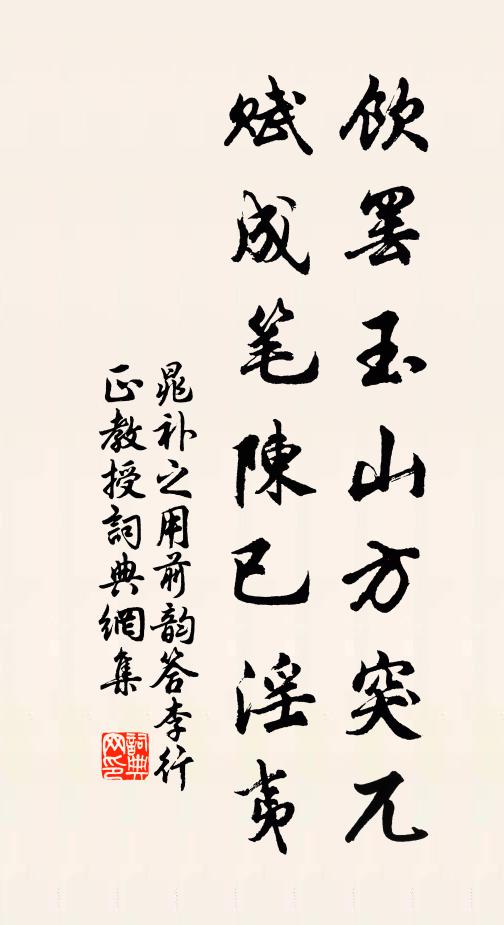 飲罢玉山方突兀
赋成笔陳已淫夷
晁补之用前韵答李行
正教授詞典網集
詞典
网印